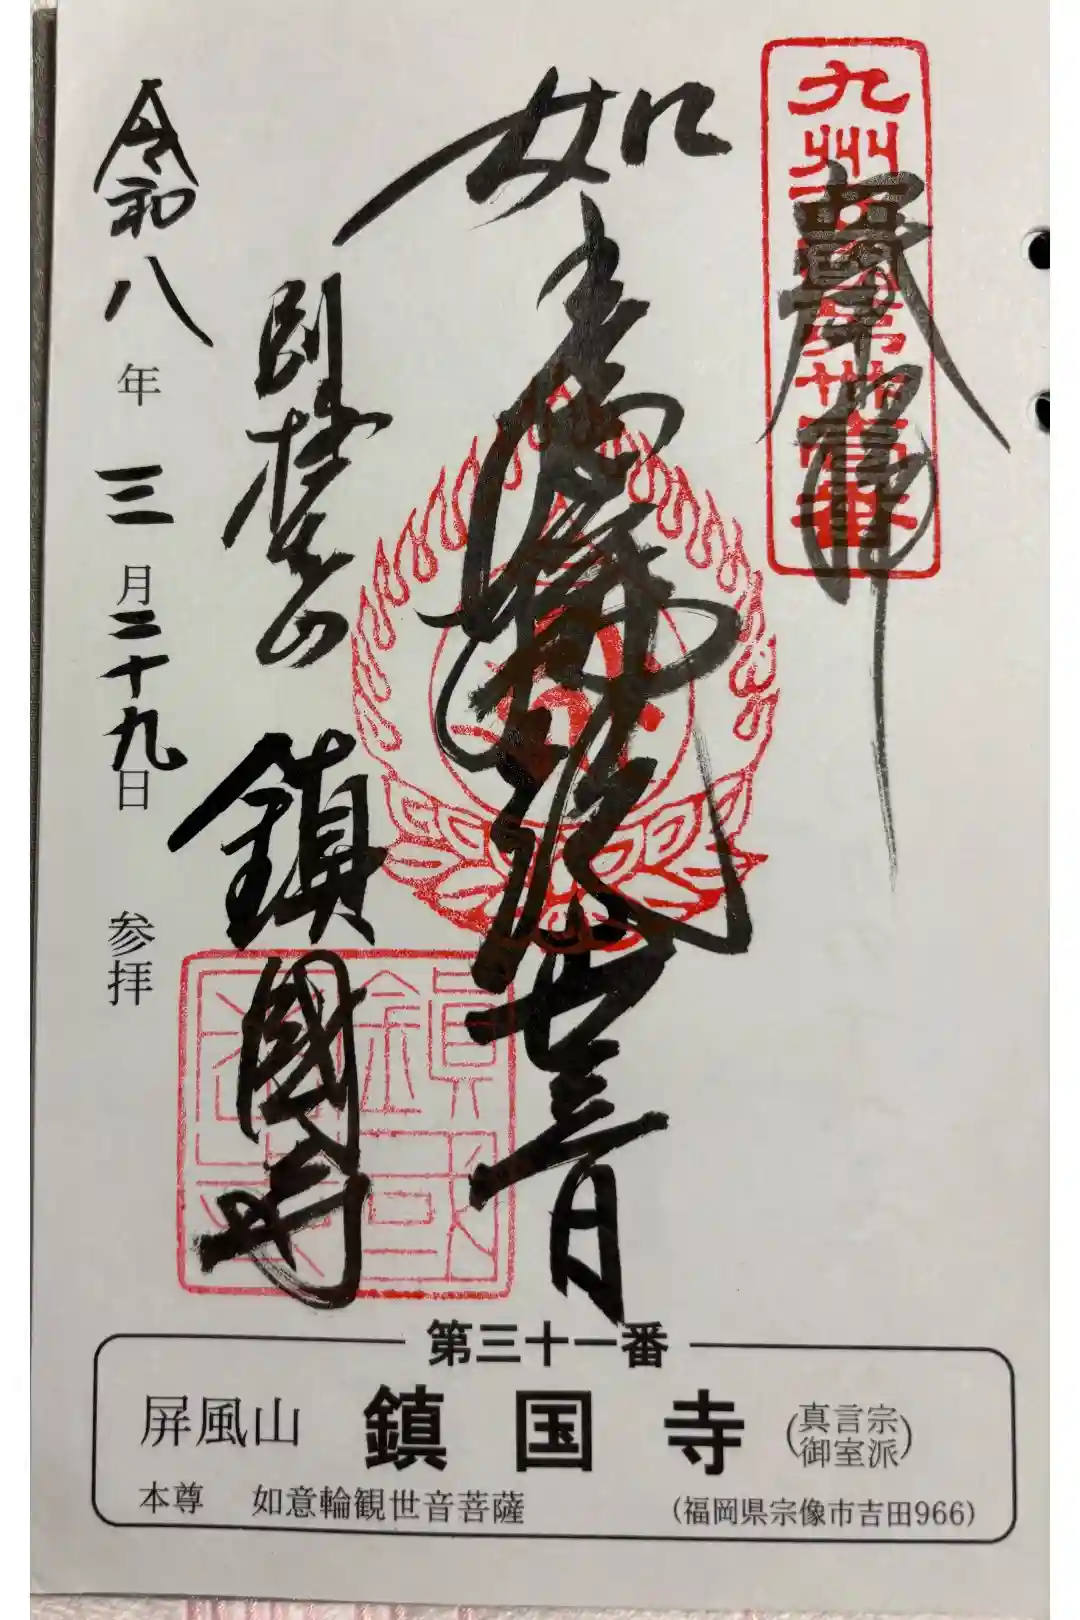 九州西國第卅壹番
奉拝
如意輪観世音
屏風山 鎮國寺
令和八年三月二十九日 参拝
第三十一番
屏風山 鎮国寺 (真言宗御室派)
本尊 如意輪観世音菩薩 (福岡県宗像市吉田966)